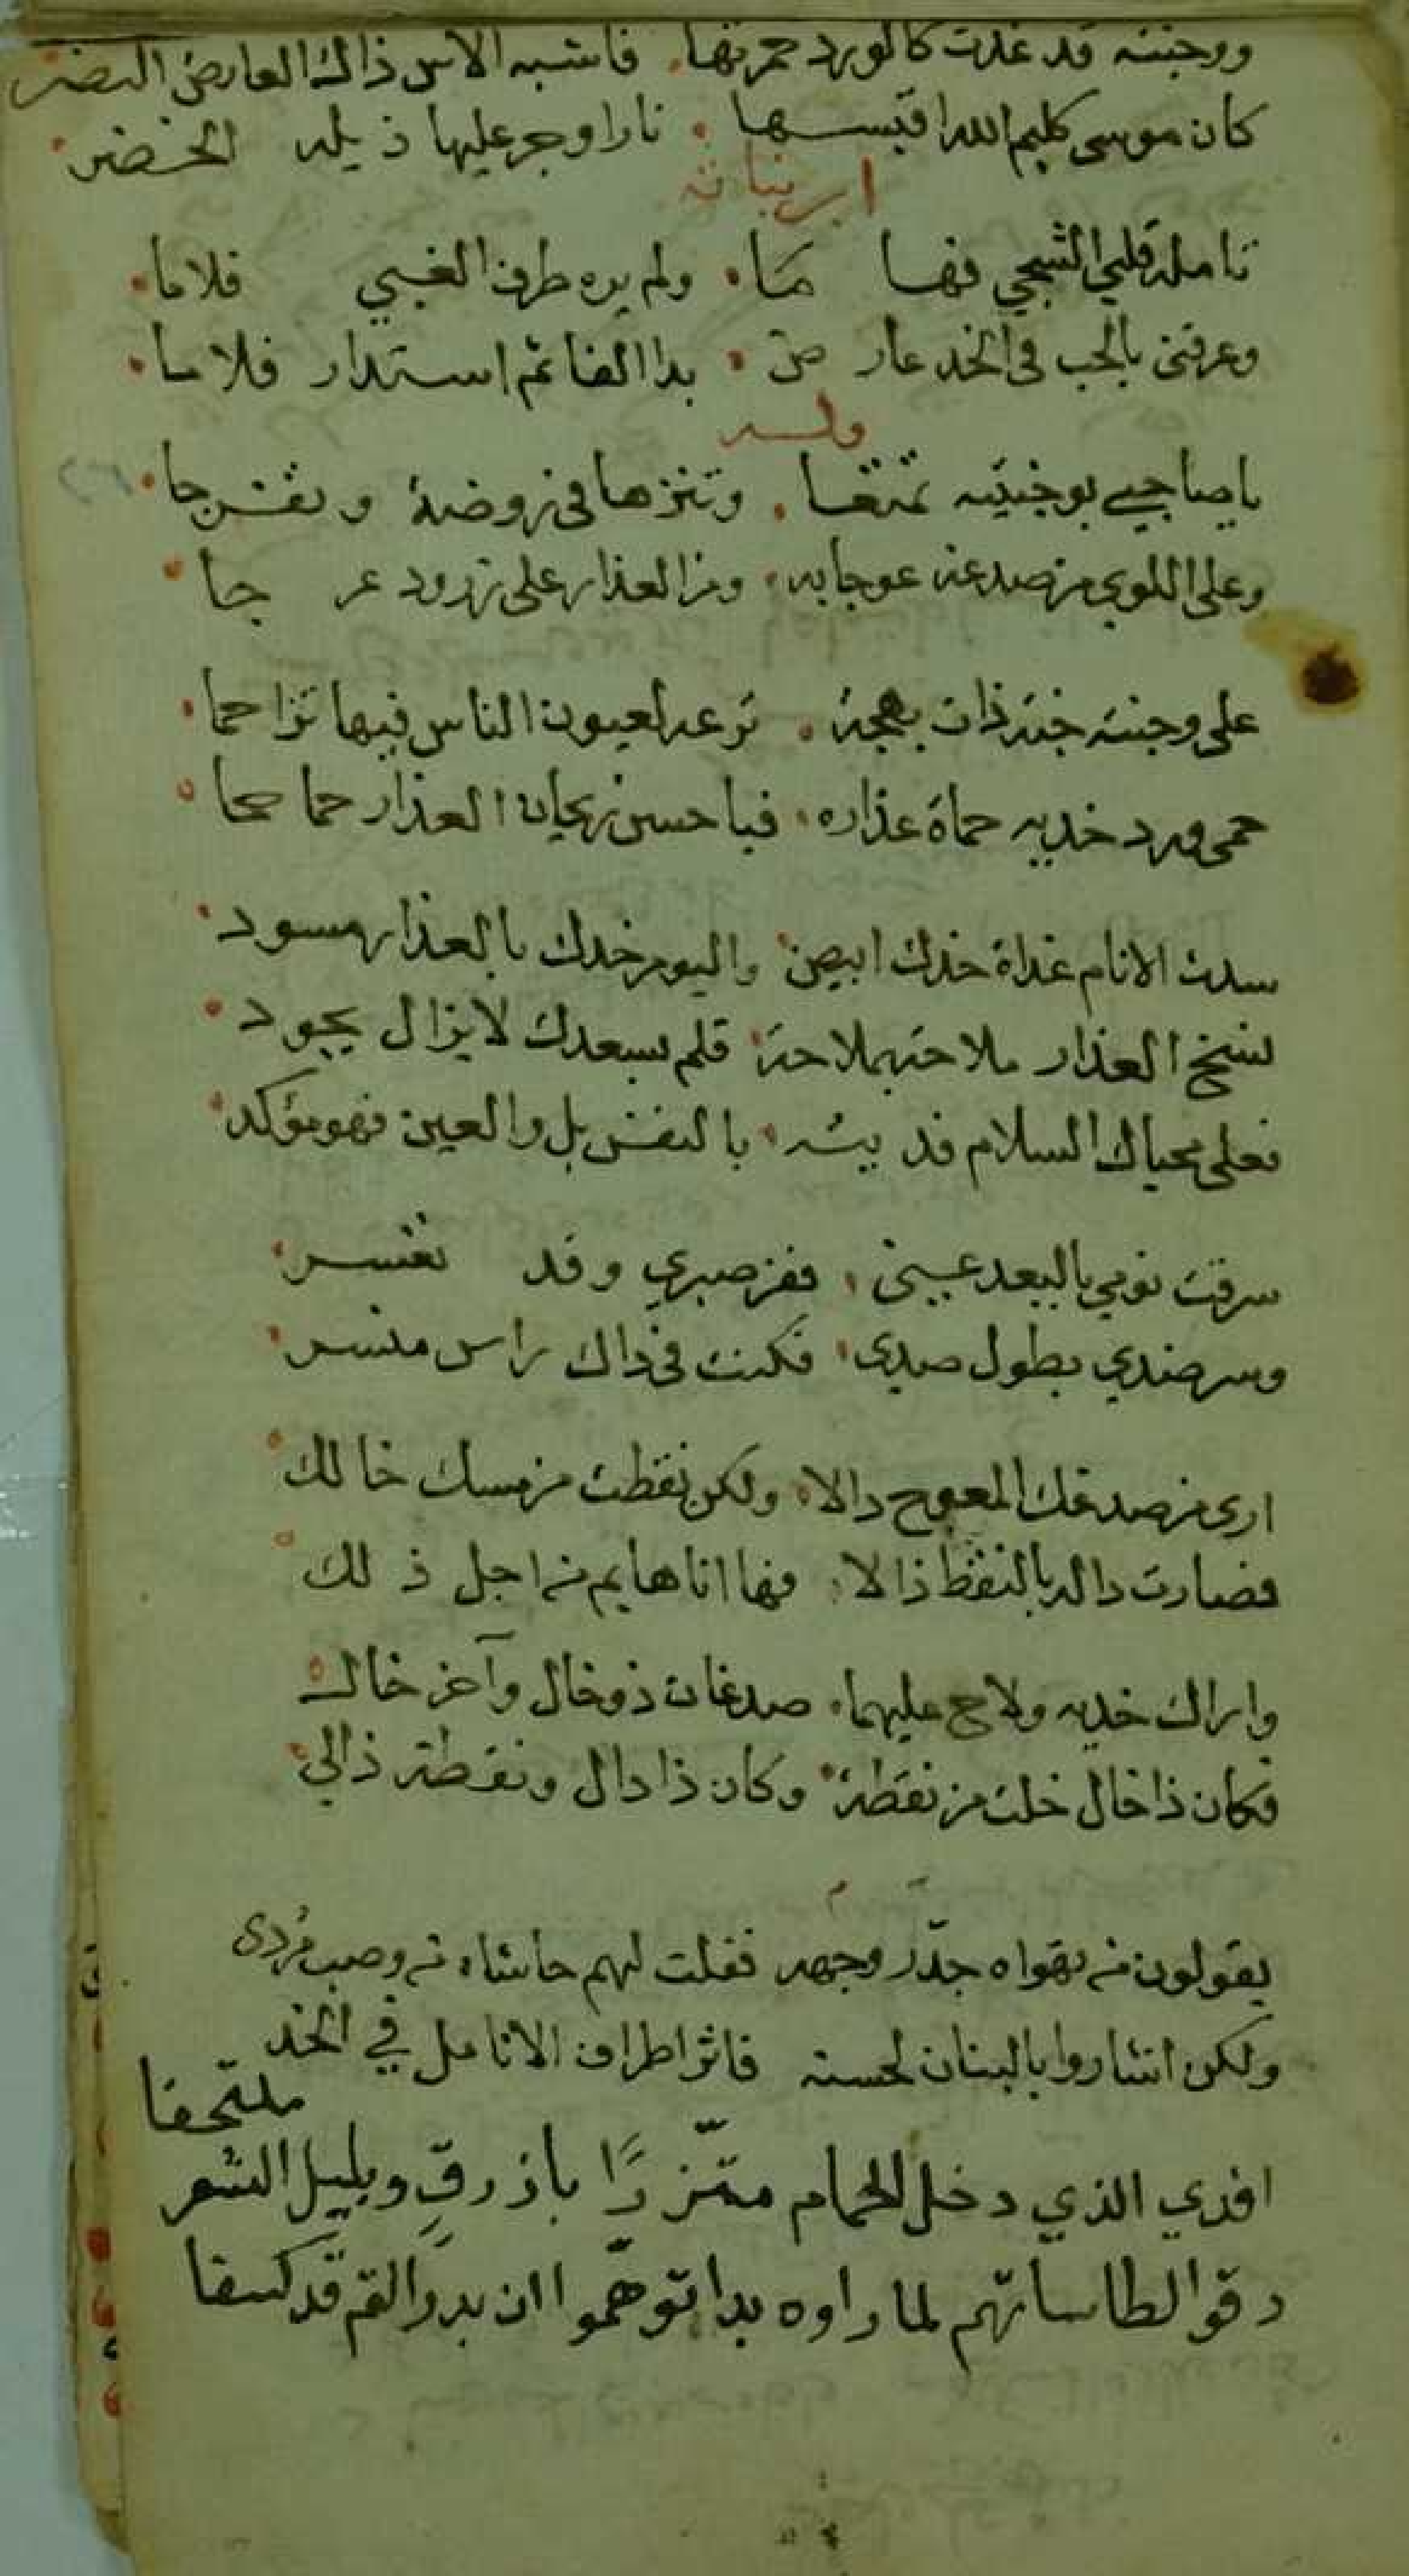 ووجنته قد غدت كالورد حمرتها . فاشبه الاس ذاك العارض النضر
كان موسى كليم الله اقبسها . نارا وجر عليها ذيله الخضر
ابن نباته
تامله قلبي الشجي فهاما . ولم يره طرف الغبي فلاما
وعرفني بالحب في الخد عارض . بدا الفا ثم استدار فلاما
وله
يا صاحبي بوجنتيه تمتعا . وتنزها في روضة وتفرجا
وعلى اللوى من صدغه عوجا به . ومن العذار على زرود عرجا
على وجنته جنة ذات بهجة . ترى لعيون الناس فيها تزاحما
حمى ورد خديه حماة عذاره . فيا حسن ريحان العذار حماحما
سدت الانام غداة خدك ابيض واليوم خدك بالعذار مسود
نسخ العذار ملاحة بملاحة قلم بسعدك لا يزال يجود
فعلى محياك السلام فديته . بالنفس بل والعين فهو مؤكد
سرقت نومي بالبعد عني . ففر صبري وقد تفسر
وسر ضدي بطول صدي . فكنت في ذاك راس منسر
ارى من صدغك المعوج دالا . ولكن نقطت من مسك خالك
فصارت داله بالنقط ذالا . فها انا هايم من اجل ذلك
واراك خديه ولاح عليهما . صدغان ذو خال وآخر خال
فكان ذا خال خلت من نقطة . وكان ذا دال ونقطة ذال
م
يقولون من تهواه جدّر وجهه فقلت لهم حاشاه من وصب مُردى
ولكن اشاروا بالبنان لحسنه فاثر اطراف الانامل في الخد
افدي الذي دخل الحمام متّزرًا بازرق وبليل الشعر ملتحفا
دقوا لطاساتهم لما راوه بدا توهّموا ان بدر التم قد كسفا